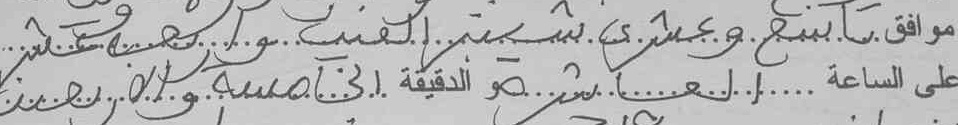 موافق تاسع وعشرى شتنبر الفين وأربعة عشر
على الساعة ..... العاشرة و الدقيقة الخامسة والأربعين